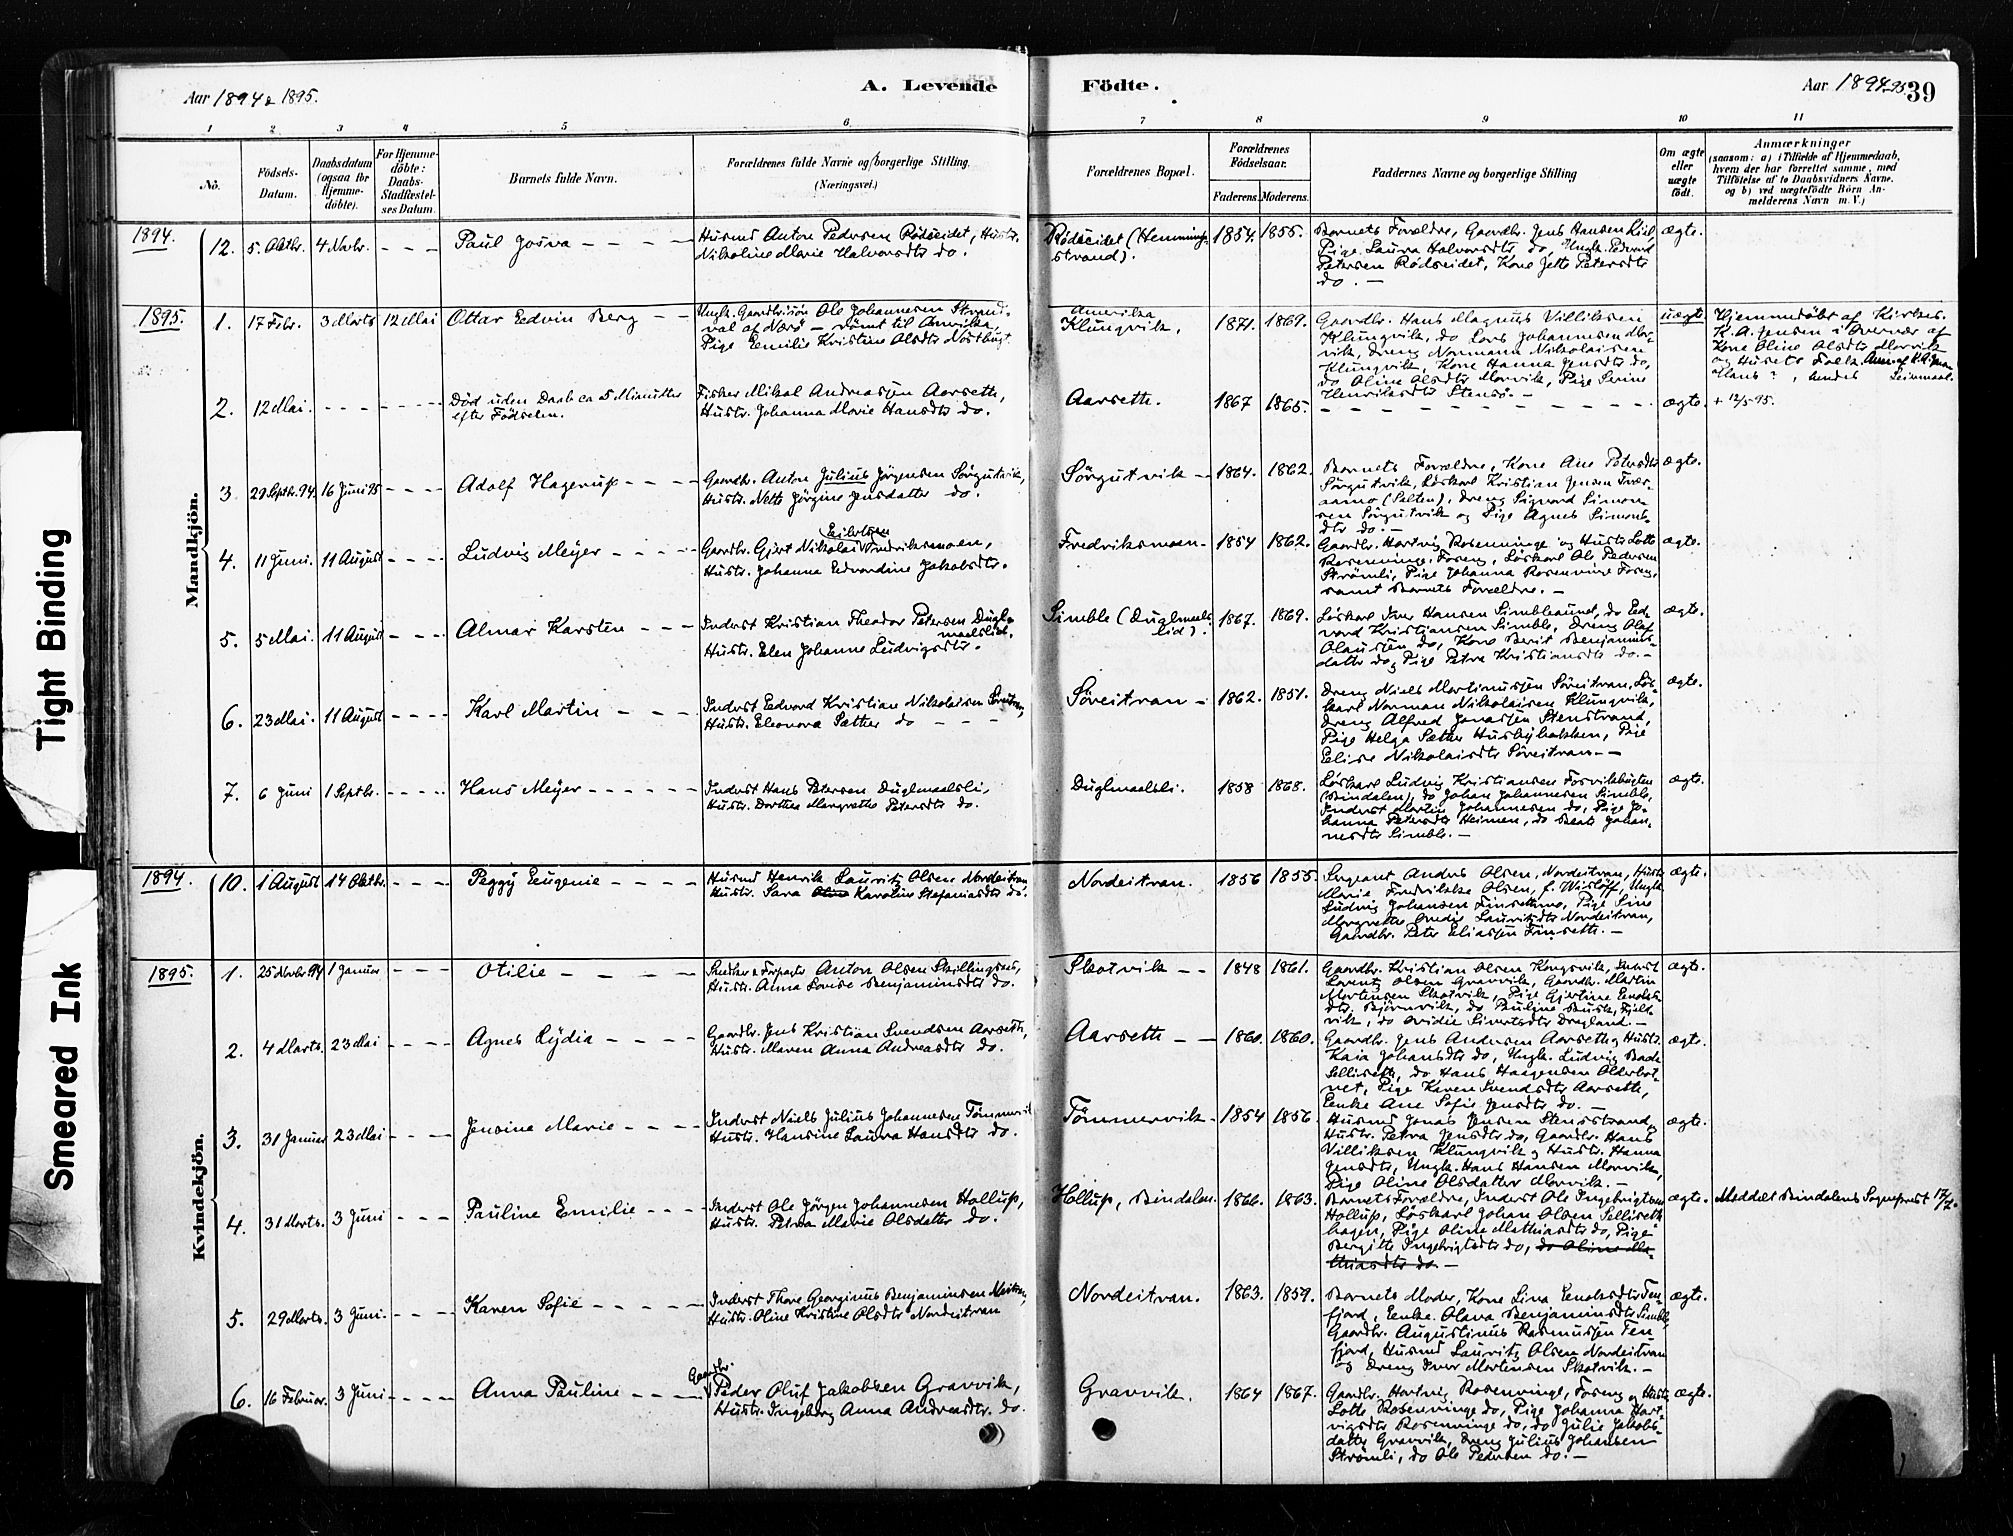 Aar 1894 & 1895.
A. Levende
Födte.
Aar 1894-95.
39
1 2 3 4 5 6 7 8 9 10 11
No.
Födsels-Datum.
Daabsdatum (ogsaa for Hjemme-döbte).
For Hjemme-döbte: Daabs-Stadfæstel-ses Datum.
Barnets fulde Navn.
Forældrenes fulde Navne og borgerlige Stilling.
(Næringsvei.)
Forældrenes Bopæl.
Forældrenes Födselsaar.
Faderens. Moderens.
Faddernes Navne og borgerlige Stilling
Om ægte eller uægte födt.
Anmærkninger
(saasom: a) i Tilfælde af Hjemmedaab,
hvem der har forrettet samme, med
Tilföielse af to Daabsvidners Navne.
og b) ved uægtefödte Börn An-
melderens Navn m. V.)
Mandkjön.
1894.
12. 5. Oktbr. 4 Novbr. - - - Paul Josva - - - -
Husmd Anton Pedersen Rödseidet, Hustr.
Nikoline Marie Halvorsdtr do.
Rödseidet (Hemming-
strand).
1854. 1855.
Barnets Forældre, Gaardbr. Jens Hansen
Pige Laura Halvorsdtr do, Ungk. Edvard
Petersen Rödseidet, Kone Jette Petersdtr
do. -
ægte.
1895.
1. 17 Febr. 3 Marts 12 Mai Ottar Edvin Berg - -
Ungk. Gaardbr.sön Ole Johannesen Strand-
val af Nærö - römt til Amerika,
Pige Emilie Kristine Olsdtr
Amerika
Klungvik.
1871. 1869.
Gaardbr. Hans Magnus Villiksen
Klungvik, do Lars Johannesen Mor-
vik, Dreng Normann Nikolaisen
Klungvik, Kone Hanna Jensdtr do,
do Oline Olsdtr Morvik, Pige Serine
Henriksdtr Stensö. -
uægte
Hjemmedöbt af Kirkes.
K. A. Jensen i Overvær af
Kone Oline Olsdtr Morvik
og Husets Folk.
2. 12 Mai. - - - - - - Död uden Daab ca 5 Minutter
efter Födselen.
Fisker Mikal Andreassen Aarseth,
Hustr. Johanna Marie Hansdtr do.
Aarseth.
1867 1865.
- - - - - - - - - -
ægte.
+ 12/5 95.
3. 29 Septbr. 94. 16 Juni 95 - - - Adolf Hagerup - - - -
Gaardbr. Anton Julius Jörgensen Sörgutvik,
Hustr. Nette Jörgine Jensdatter do.
Sörgutvik -
1864. 1862.
Barnets Forældre, Kone Ane Petersdtr
Sörgutvik, Löskarl Kristian Jensen Tvær-
aamo (Salten), Dreng Sigvard Simon-
sen Sörgutvik og Pige Agnes Simons-
dtr do. -
ægte.
4. 11 Juni. 11 August - - - Ludvig Meyer - - - -
Gaardbr. Gjert Nikolai Eilertsen Fredriksmoen,
Hustr. Johanna Edvardine Jakobsdtr.
Fredriksmoen -
1854 1862.
Gaardbr. Hartvig Rosenvinge og Hustr Lotte
Rosenvinge, Foreng, Löskarl Ole Pedersen
Strömli, Pige Johanna Rosenvinge Foreng,
samt Barnets Forældre. -
ægte.
5. 5 Mai. 11 August - - - Almar Karsten - - -
Inderst Kristian Theodor Petersen Dugl-
maalslid.
Hustr. Elen Johanne Ludvigsdtr.
Simble (Duglmaals-
lid).
1867. 1869.
Löskarl Iver Hansen Simblesund, do Ed-
vard Kristiansen Simble, Dreng Olaf
Olaussen do, Kone Berit Benjamins-
datter do og Pige Petra Kristiansdtr do. -
ægte.
6. 23 Mai. 11 August - - - Karl Martin - - -
Inderst Edvard Kristian Nikolaisen Söreitran,
Hustr. Eleonora Sæther do - - -
Söreitran -
1862. 1851.
Dreng Niels Martinussen Söreitran, Lös-
karl Norman Nikolaisen Klungvik,
Dreng Alfred Jonassen Stenstrand,
Pige Helga Sæther Husbybakken, Pige
Elise Nikolaisdtr Söreitran. -
ægte.
7. 6 Juni 1 Septbr. - - - Hans Meyer - - - - -
Inderst Hans Petersen Duglmaalsli,
Hustr. Dorthea Margrethe Petersdtr do.
Duglmaalsli.
1858 1868.
Löskarl Ludvig Kristiansen Forsviksbugten
(Bindalen), do Johan Johannesen Simble,
Inderst Martin Johannesen do, Pige Jo-
hanna Petersdtr Heimen, do Beate Johan-
nesdtr Simble. -
ægte.
Kvindekjön.
1894.
10. 1 August 14 Oktbr. - - - Peggy Eugenie - - - -
Husmd Henrik Lauritz Olsen Nordeitran
Hustr. Sara Oline Karoline Stefaniasdtr do.
Nordeitran.
1856 1855.
Sergeant Anders Olsen, Nordeitran, Hustr
Marie Fredrikke Olsen, f. Wislöff, Ungk.
Ludvig Johansen Finsethmo, Pige Sine
Margrethe Lauritzdtr Nordeitran,
Gaardbr. Peter Eliassen Finseth. -
ægte.
1895.
1. 25 Novbr 94 1 Januar - - - Otilie - - - -
Snedker & Forpagter Anton Olsen Skillingsaas,
Hustr. Anna Lovise Benjaminsdtr do.
Skotvik - -
1848 1861.
Gaardbr. Kristian Olsen Kongsvik, Inderst
Lorentz Olsen Gravvik, Gaardbr. Martin
Mortensen Skotvik, Pige Gjertine Enoks-
dtr. Björnvik, do Pauline Busk, Fjeld-
vik, do Ovidie Sivertsdtr Dregland. -
ægte.
2. 4 Marts. 23 Mai - - - Agnes Lydia - - - -
Gaardbr. Jens Kristian Svendsen Aarseth,
Hustr. Maren Anna Andreasdtr do.
Aarseth - -
1860. 1860.
Gaardbr. Jens Andersen Aarseth og Hustr.
Kaia Johansdtr do, Ungk. Ludvig Bade
Sellisett, do Hans Haagensen Olderbot-
net, Pige Karen Svendsdtr Aarseth,
Enke Ane Sofie Jensdtr do. -
ægte.
3. 31 Januar 23 Mai - - - Jensine Marie - - - -
Inderst Niels Julius Johannesen Tömmervik
Hustr. Hansine Laura Hansdtr do.
Tömmervik -
1854 1856.
Husmd Jonas Jensen Stensstrand og
Hustr. Petra Jensdtr do, Gaardbr. Hans
Villiksen Klungvik og Hustr. Hanna
Jensdtr, Ungk. Hans Hansen Morvik,
Pige Oline Olsdatter Morvik. -
ægte.
4. 31 Marts. 3 Juni - - - Pauline Emilie - - -
Inderst Ole Jörgen Johannesen Hollup,
Hustr. Petra Marie Olsdatter do.
Hollup, Bindalen.
1866. 1863.
Barnets Forældre, Inderst Ole Ingebrigtsen
Hollup, Löskarl Johan Olsen Selliseth-
hagen, Pige Oline Mathiasdtr do, Pige
Bergitte Ingebrigtsdtr do, do Oline Ma-
thiasdtr do. -
ægte.
Meddelt Bindalens Sognepræst 17/7.
5. 29 Marts. 3 Juni. - - - Karen Sofie - - - -
Inderst Thore Georginus Benjaminsen
Hustr. Oline Kristine Olsdtr Nordeitran
Nordeitran.
1863. 1859.
Barnets Moder, Kone Lina Enoksdtr Ten-
fjord, Enke Olava Benjaminsdtr Simble,
Gaardbr. Augustinus Rasmussen Ten
fjord, Husmd Lauritz Olsen Nordeitran
og Dreng Iver Mortensen Skotvik. -
ægte.
6. 16 Februar. 3 Juni - - - Anna Pauline - - - -
Gaardbr.
Peder Oluf Jakobsen Gravvik,
Hustr. Ingeborg Anna Andreasdtr. do.
Gravvik.
1864 1867.
Gaardbr. Hartvig Rosenvinge, Foreng og Hustr.
Lotte Rosenvinge do, Pige Johanna Hart-
vigsdtr Rosenvinge do, do Julie Jakobs-
datter Gravvik, Dreng Julius Johansen
Strömli, do Ole Pedersen do. -
ægte.
Tight Binding
Smeared Ink